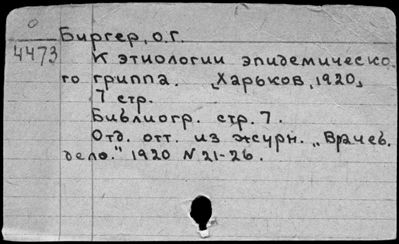 О
4473
Биргер, О.Г.
К этиологии эпидемическо-
го гриппа. [Харьков, 1920]
7 стр.
Библиогр. стр. 7.
Отд. отт. из журн. „Врачев.
дело." 1920 N 21-26.